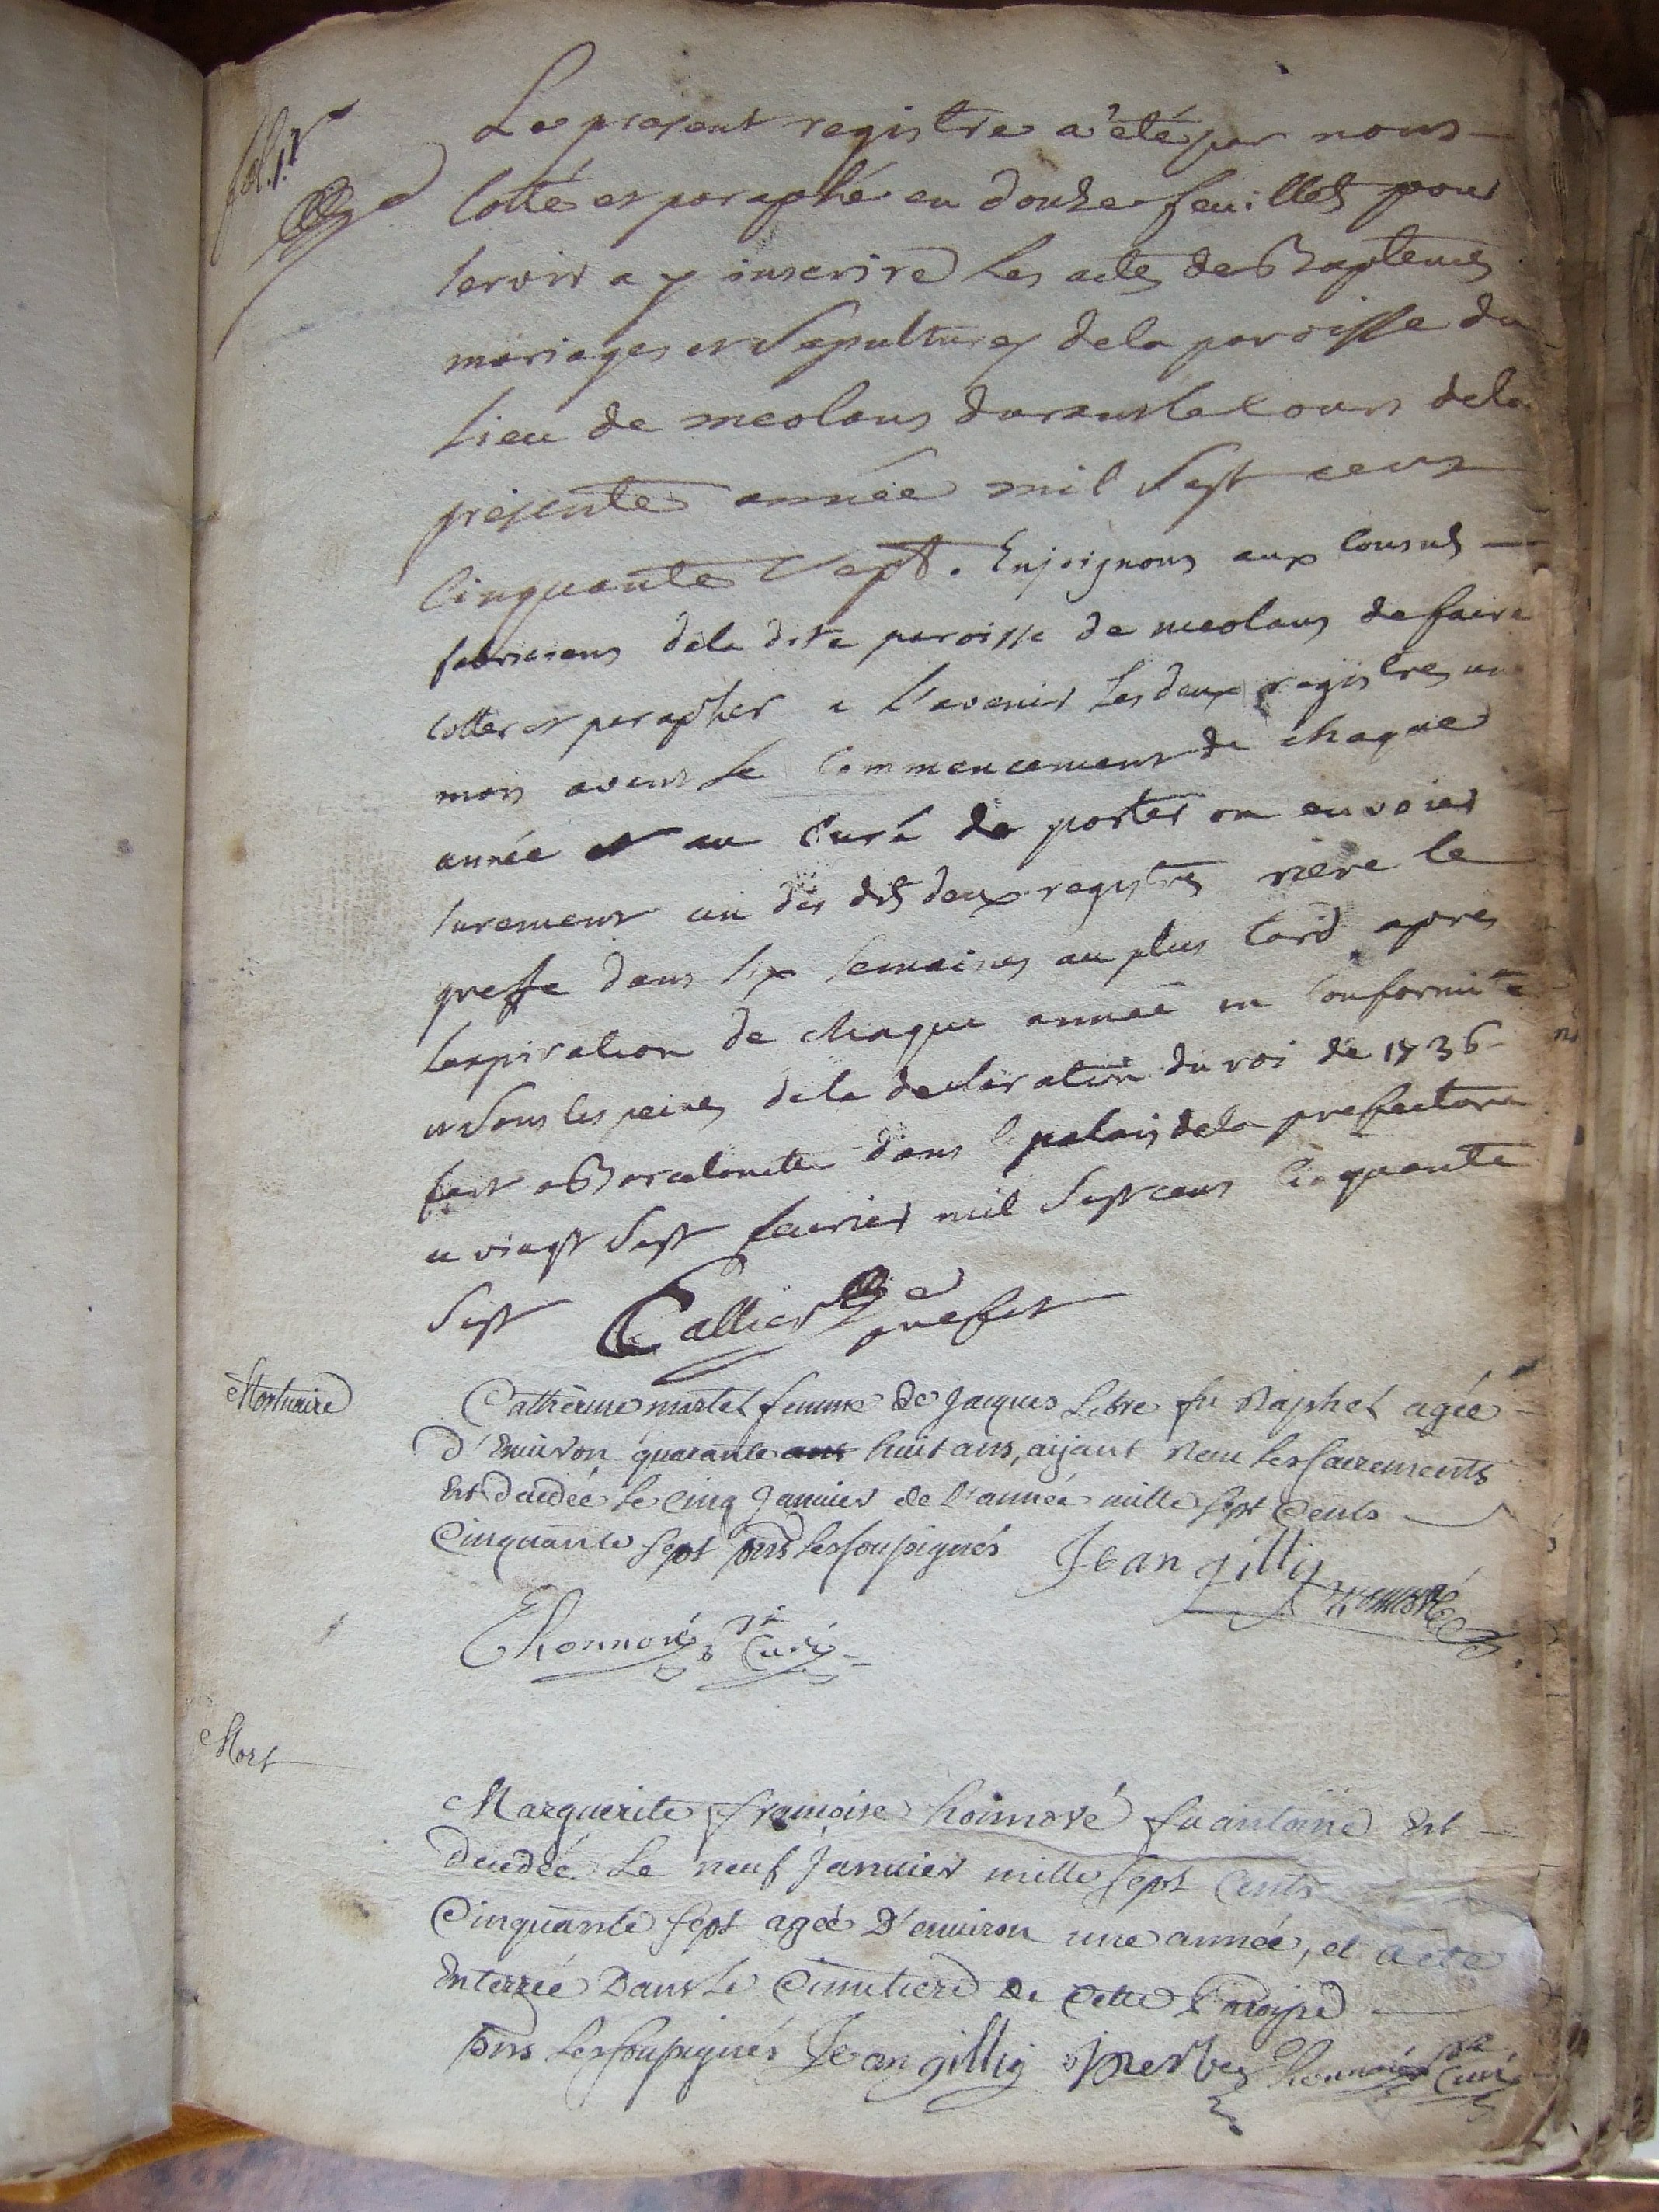 fol. 1.r
Le present registre a été par nous
Cotté et paraphé en douze feuillets pour
servir a y inscrire les actes de Baptemes
mariages et sepultures de la paroisse du
Lieu de meolans durant le cours de la
presente année mil sept cent
Cinquante sept. Enjoignons aux Consuls
fabriciens de la dite paroisse de meolans de faire
cotter et parapher a l'avenir les deux registres un
mois avant le Commencement de chaque
année et au Curé de porter ou envoier
surement un des dts deux registres riere le
greffe dans six semaines au plus tard apres
lexpiration de chaque année en conformité
et sous les peines de la declaration du roi de 1736
fait a Barcelonette dans le palais de la prefecture
a vingt sept fevrier mil sept cens Cinquante
Sept
prefet
Mortuaire
Catherine martel femme de Jacques Lebre fu Raphel agée
d'Environ quarante ans huit ans, aijant Reçu les sacrements
Est decedée le cinq Janvier de l'année mille sept Cents
Cinquante sept pnts les soussignés Jean gilly
Ehonnoré Curé
Mort
Marguerite françoise honnoré fu antoine Est
decedée le neuf Janvier mille sept Cents
Cinquante sept agée D'environ une année, et a eté
Enterrée Dans le Cimetiere de Cette Paroisse
pnts les soussignés Jean gilly Ehonnoré Curé